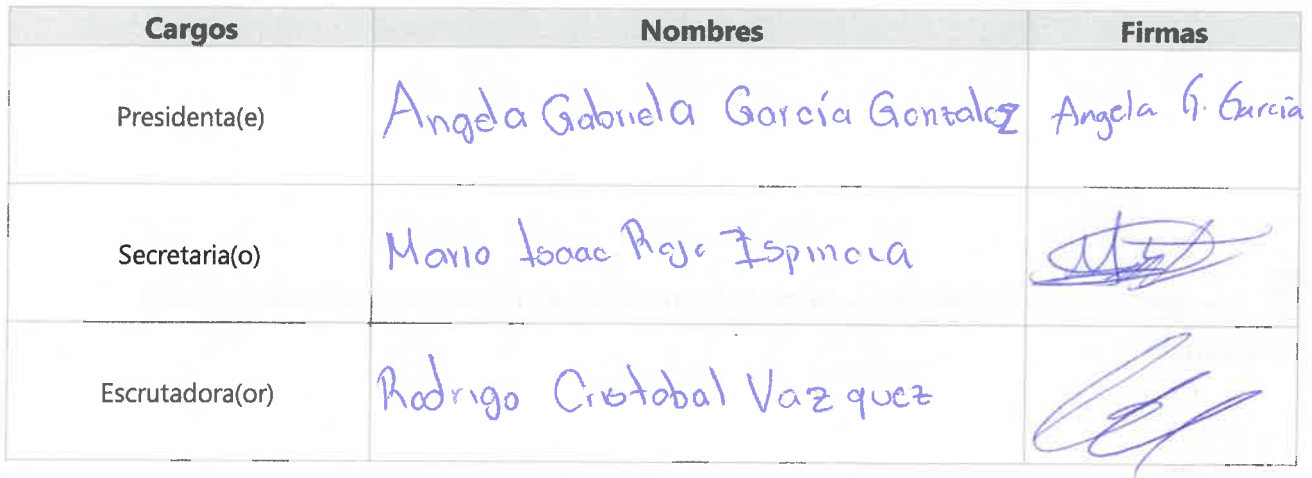 Cargos Nombres Firmas
Presidenta(e) Angela Gabriela García Gonzalez Angela G. García
Secretaria(o) Mario Isaac Rojo Espinoza
Escrutadora(or) Rodrigo Cristobal Vazquez